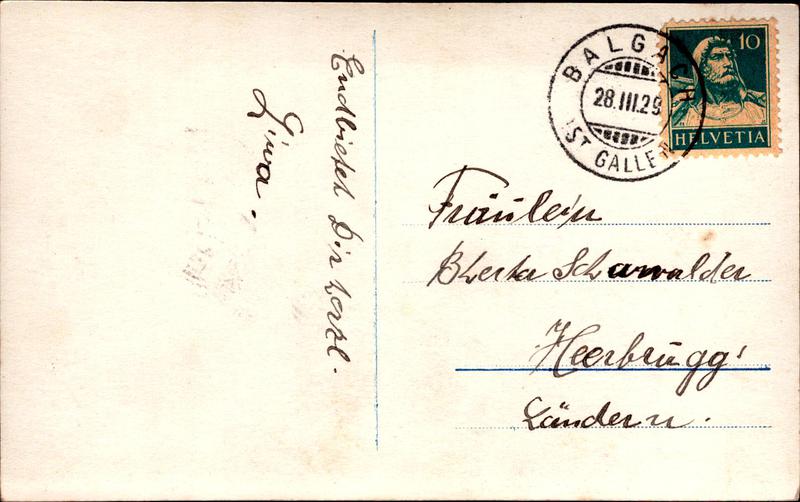 Endbietet Dir herzl.
Lina.
BALGACH
28.III.29
(ST GALLEN)
10
HELVETIA
Fräulein
Bherta Schawalder
Heerbrugg
Ländern.